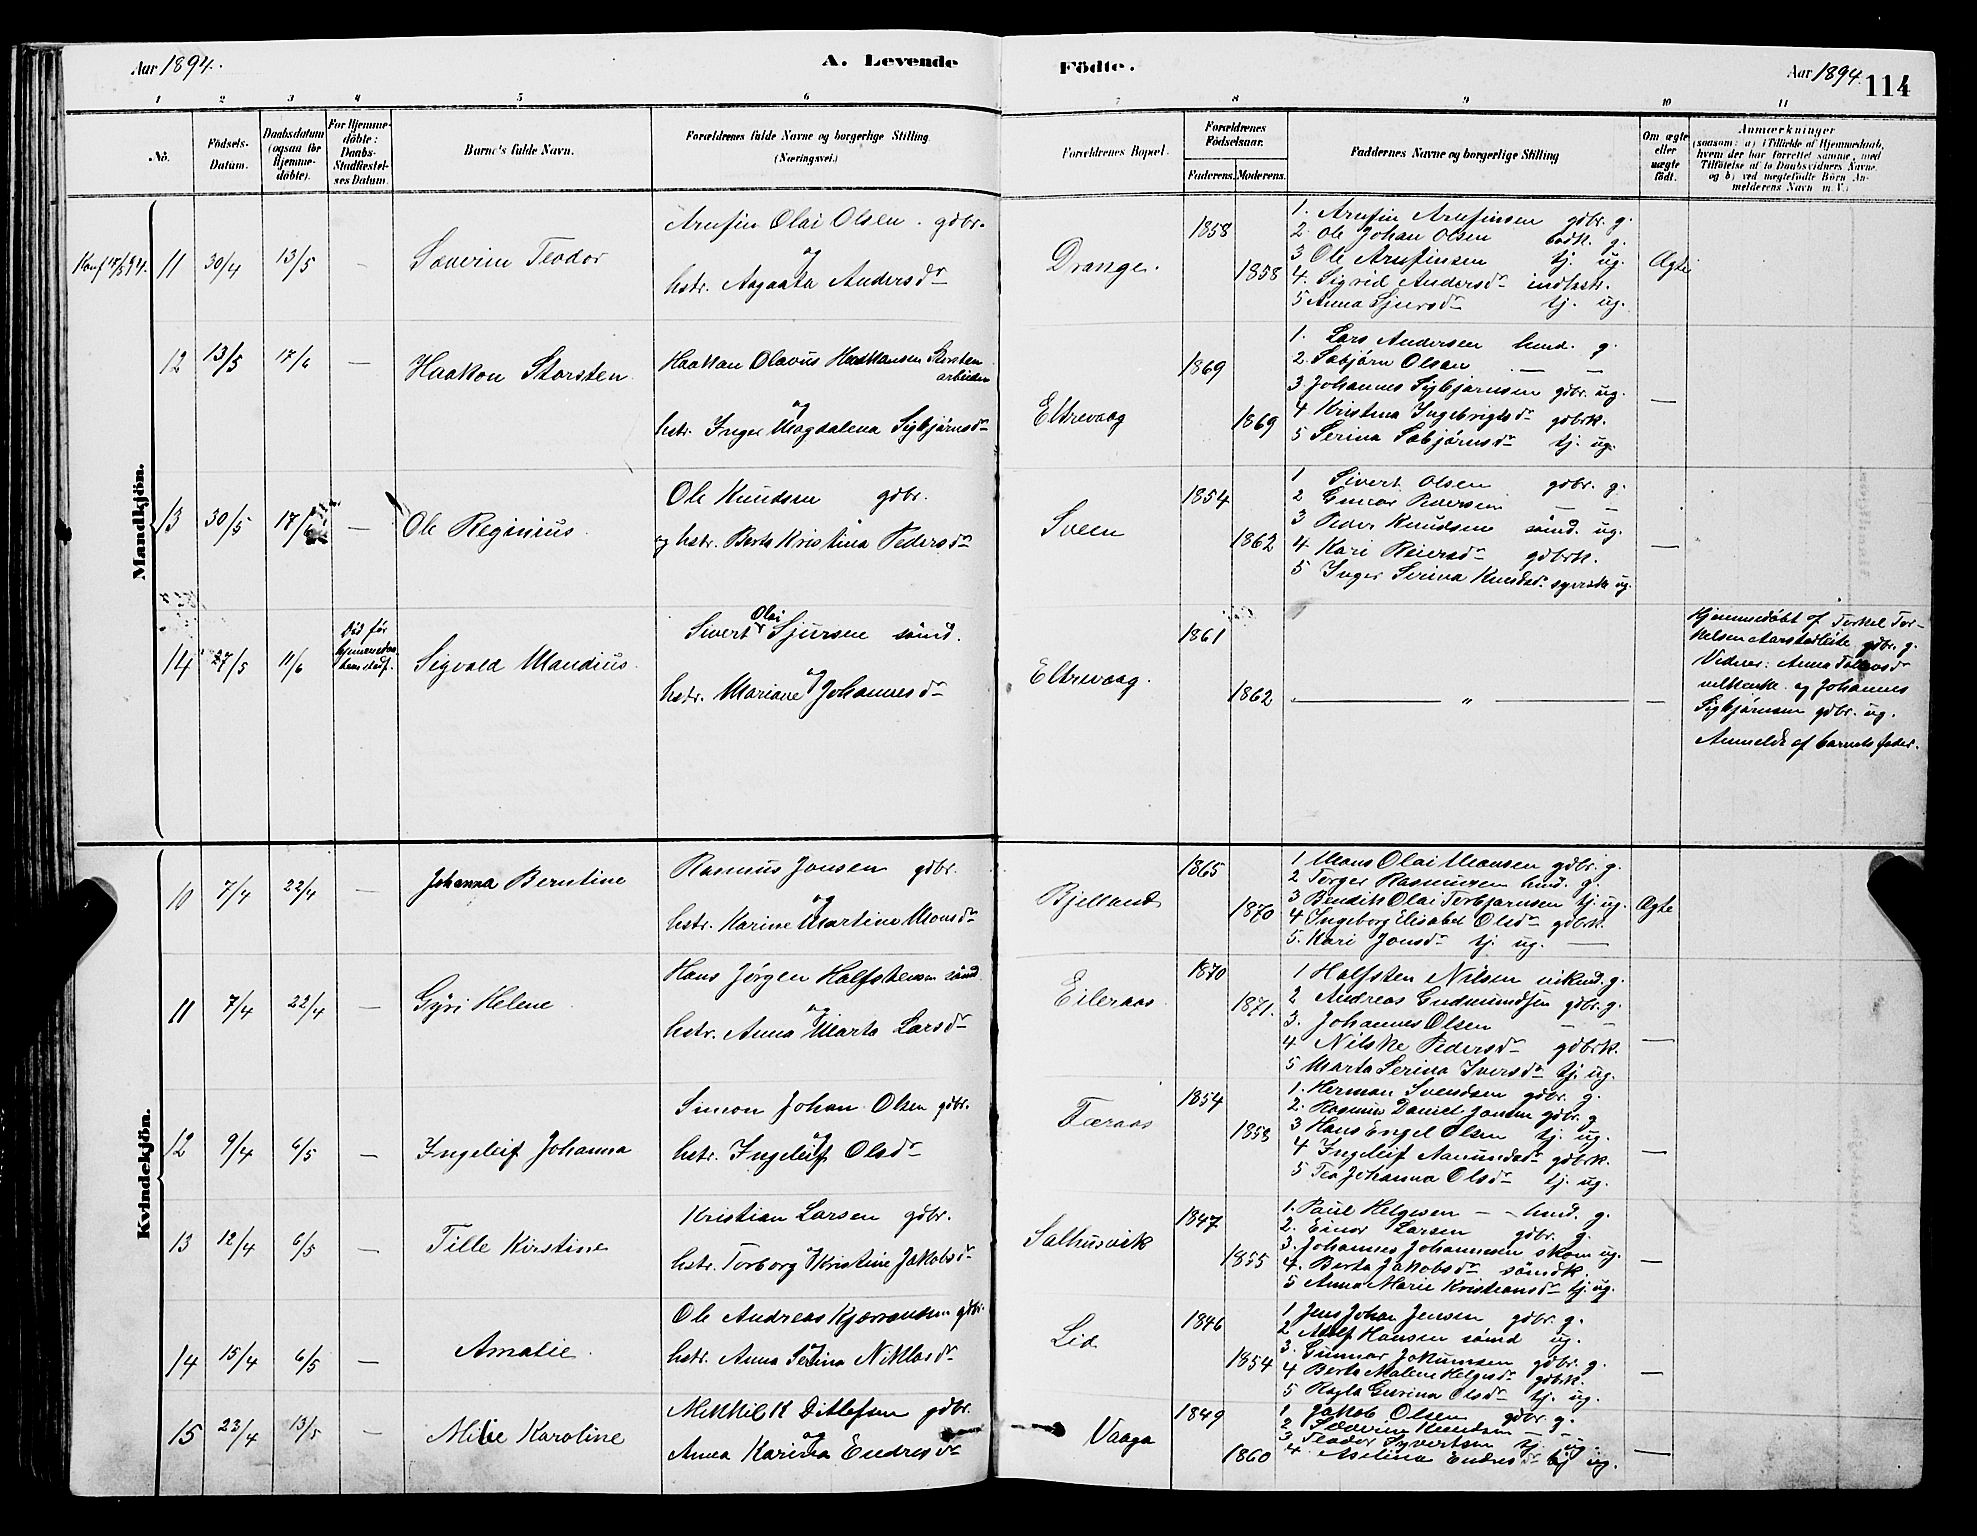 Aar 1894.
A. Levende
Födte.
Aar 1894.
114
1 2 3 4 5 6
7 8 9 10 11
No.
Födsels-
Datum.
Daabsdatum
(ogsaa for
Hjemme-
döbte).
For Hjemme-
döbte:
Daabs-
Stadfæstel-
ses Datum.
Barne's fulde Navn.
Forældrenes fulde Navne og borgerlige Stilling
(Næringsvei.)
Forældrenes Bopæl.
Forældrenes
Födselsaar.
Faderens.
Moderens.
Faddernes Navne og borgerlige Stilling
Om ægte
eller
uægte
födt.
Anmærkninger
(saasom: a) i Tilfælde af Hjemmedaab,
hvem der har forrettet samme, med
Tilföielse af to Daabsvidners Navne
og b) ved uægtefödte Börn An-
melderens Navn m. V.)
Mandkjön.
11 30/4 13/5 Severin Teodor
Arnfin Olai Olsen. gdbr.
og
hstr. Aagaata Andersdr
Drange.
1858
1858
1. Arnfin Arnfinsen gdbr. g.
2. Ole Johan Olsen g.
3 Ole Arnfinsen tj. ug.
4. Sigrid Andersdr
5 Anna Sjursdr tj. ug.
Ægte
12 13/5 17/6 — Haakon Storsten
Haakon Olavus Haakonsen Storsten
arbeider
og
hstr. Inger Magdalena Sigbjørnsdr
Eltrevaag
1869
1869
1. Lars Andersen hmd. g.
2. Sæbjørn Olsen — —
3. Johannes Sigbjørnsen gdbr. ug.
4 Kristina Ingebrigtsdr gdbrk.
5 Serina Sæbjørnsdr tj. ug.
—
13 30/5 17/6 — Ole Reginius.
Ole Knudsen gdbr.
og hstr. Berta Kristina Pedersdr
Sveen
1854
1862
1 Sivert Olsen gdbr. g.
2 Gunnar Pedersen — —
3 Peder Knudsen sömd. ug.
4 Kari Reiersdr gdbrk.
5 Inger Serina Knudsdr ug.
—
14 27/5 11/6
Död før
Sigvald Mandius.
Olai
Sivert Sjursen sömd.
og
hstr. Mariane Johannesdr
Eltrevaag.
1861
1862
— " —
—
Hjemmedøbt af Torkel Tor-
kelsen gdbr. g.
Vidner: Anna
og Johannes
Sigbjørnsen gdbr. ug.
Anmeldt af barnets fader.
Kvindekjön.
10 7/4 22/4 — Johanna Berntine
Rasmus Jonsen gdbr.
og
hstr. Karine Martine Monsdr
Bjelland
1865
1870
1 Mons Olai Monsen gdbr. g.
2 Torger Rasmussen hmd. g.
3 Bendik Olai Torbjørnsen tj. ug.
4 Ingeborg Elisabet Olsdr gdbrk.
5. Kari Jonsdr tj. ug. —
Ægte
11 7/4 22/4 — Gyri Helene
Hans Jörgen Halfstensen sömd.
og
hstr. Anna Marta Larsdr
Eileraas
1870
1871.
1 Halfsten Nilsen g.
2 Andreas Gudmundsen gdbr. g.
3. Johannes Olsen — —
4 Nilske Pedersdr gdbrk.
5 Marta Serina Iversdr tj. ug.
—
12 9/4 6/5 — Ingeleif Johanna
Simon Johan Olsen gdbr.
og
hstr. Ingeleif Olsdr
Færaas
1854
1858
1. Herman Svendsen gdbr. g.
2. Rasmus Daniel Jonsen gdbr. g
3 Hans Engel Olsen tj. ug.
4 Ingeleif Aamundsdr gdbrk.
5 Tea Johanna Olsdr tj. ug.
—
13 12/4 6/5 — Tille Kirstine
Kristian Larsen gdbr.
og
hstr. Torborg Kristine Jakobsdr
Salhusvik
1847
1855
1. Paul Helgesen — hmd. g.
2. Einar Larsen gdbr. g.
3. Johannes Johannesen skom ug.
4. Berta Jakobsdr sömdk.
5 Anna Marie Kristiansdr tj. ug.
—
14 15/4 6/5 — Amalie.
Ole Andreas gdbr.
og
hstr. Anna Serina Niklasdr
Lid
1846
1854
1 Jens Johan Jensen gdbr. g.
2 Adolf Hansen sömd ug.
3. Gunnar gdbr. g.
4 Berta Malene Helgesdr gdbrk.
5 Gurina Olsdr tj. ug.
—
15 22/4 13/5 — Milie Karoline
Mikkel K Ditlefsen gdbr.
og
Anna Karina Endresdr
Vaaga
1849
1860
1 Jakob Olsen gdbr. g.
2 Severin Knudsen — —
3 Teodor Syvertsen tj. ug.
4. Aselina Endresdr tj ug.
—